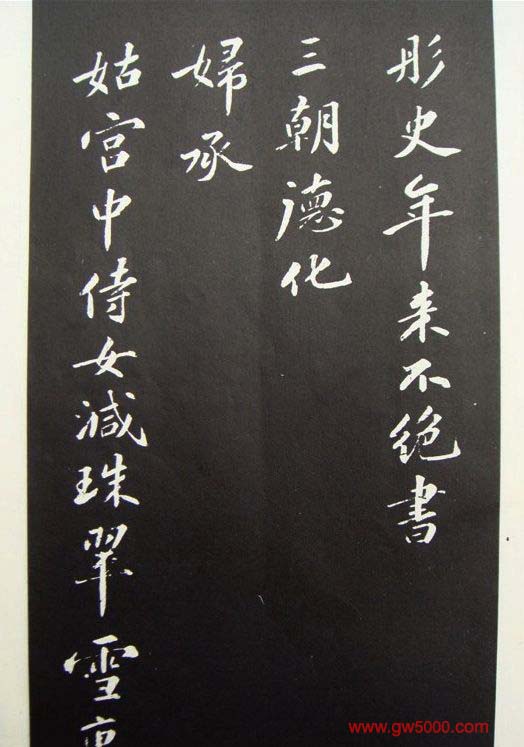 彤史年来不絶書
三朝德化
婦承
姑宫中侍女减珠翠雪
www.gw5000.com